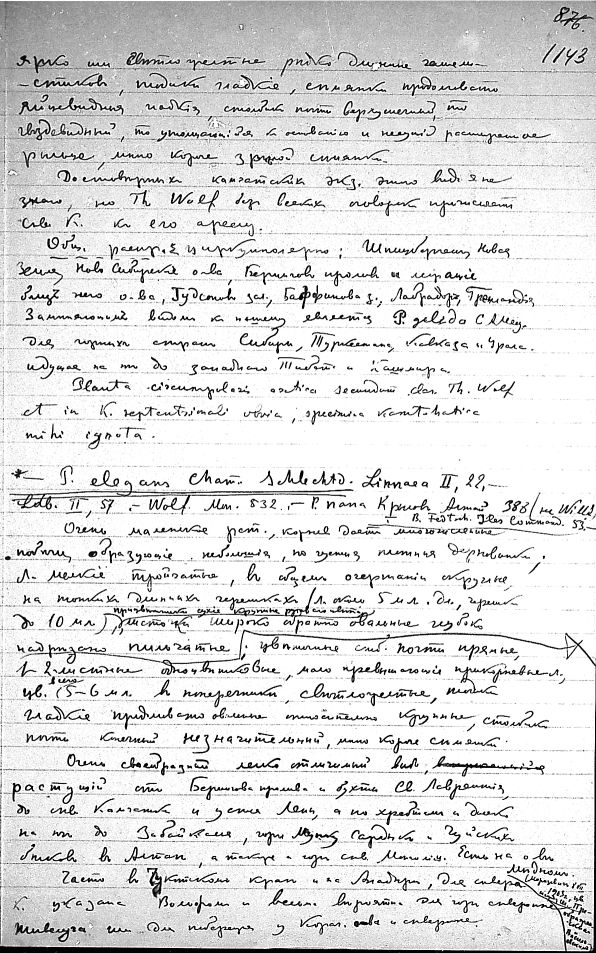 876.
1143
ярко или светложелтые редко длиннее чаше-
-стиков, плодики гладкие, семянки продолговато
яйцевидныя гладкия, столбик почти верхушечный, не
гвоздевидный, то утолщающийся к основанию и несущий расширенное
рыльце, мало короче зрелой семянки.
Достоверных камчатских экз. этого вида я не
знаю, но Th. Wolf без всяких оговорок причисляет
сев. К. к его ареалу.
Общ. распр. циркумполярно: Шпицберген, Новая
Земля, Ново Сибирские о-ва, Берингов пролив и
близ него о-ва, Гудсонов зал., Баффинова з., Лабрадор, Гренландия
Замещающим видом к нашему является P. gelida C A Mey.
для горных стран Сибири, Туркестана, Кавказа и Урала.
идущая на юг до западного Тибета и Кашмира.
Planta circumpolaris arctica secundum clar. Th. Wolf
et in K. septentrionali obvia, specimina kamtschatica
mihi ignota.
* — P. elegans Cham. Schlechtd. Linnaea II, 22, —
Ldb. II, 57. — Wolf. Mon. 532. — P. nana Крылов Алтай 386 (не Willd)
B. Fedtsch. Iles Command. 53 —
Очень маленькое раст., корень дает многочисленные
побеги, образующие небольшия, но густыя дерновинки;
л. мелкие тройчатые, в общем очертании округлые,
на тонких длинных черешках (л. около 5 мл. дл., черешки
до 10 мл), листочки широко обратно овальные глубоко
надрезано пильчатые; цветочные стебли почти прямые,
1-2 листные одноцветковые, мало превышающие прикорневые л.,
цв. всего (5–6 мл. в поперечнике, светложелтые,
гладкие продолговато овальные относительно крупные, столбик
почти конечный незначительный, мало короче семянки.
Очень своеобразный легко отличимый вид,
растущий от Берингова пролива и бухты Св. Лаврентия,
до сев. Камчатки и устья Лены, а по хребтам и далее
на юг до Забайкалья, горы Мунку Сардык и Чуйских
белков в Алтае, а также и горы сев. Монголии. Есть на о-ве
Медном.
Часто в Чукотском крае и на Анадыре, для севера
К. указана Вольфом и весьма вероятна для гор севернее
Тигиля или для побережья у Караг. о-ва и севернее.